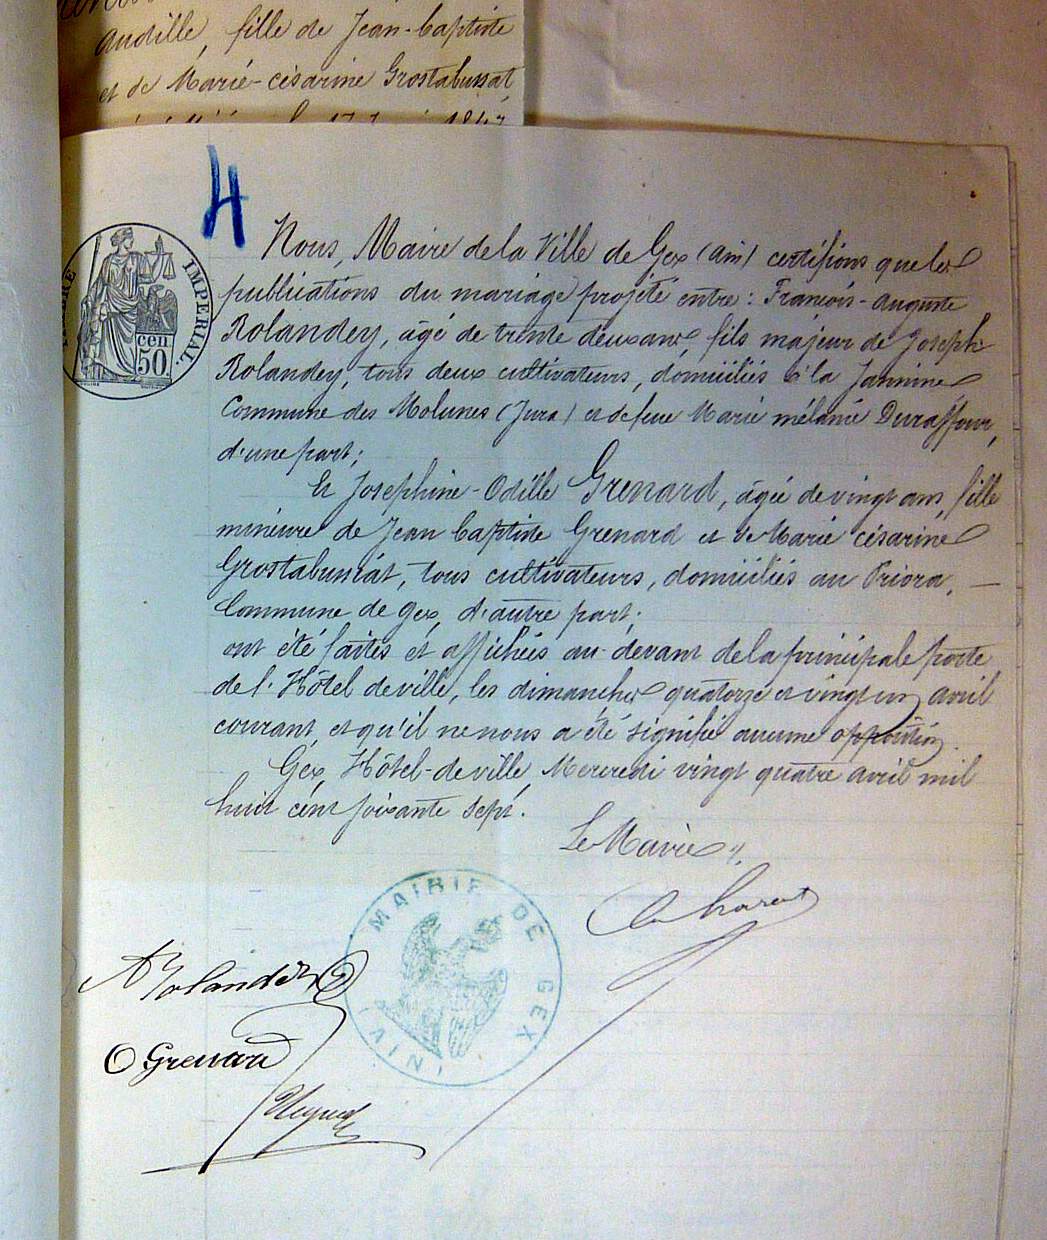 Audille, fille de Jean-baptiste
et de Marie-césarine Grostabussat,
4
TIMBRE IMPERIAL.
cen
50.
Nous, Maire de la Ville de Gex (ain) certifions que les
publications du mariage projeté entre : François-auguste
Rolandey, âgé de trente deux ans, fils majeur de Joseph
Rolandey, tous deux cultivateurs, domiciliés à la Jannine
Commune des Molunes (Jura) et de feue Marie mélanie Duraffour,
d'une part;
Et Joséphine-Odille Grenard, âgée de vingt ans, fille
mineure de Jean baptiste Grenard et de Marie césarine
Grostabussat, tous cultivateurs, domiciliés au Priora, —
Commune de gex, d'autre part;
ont été faites et affichées au-devant de la principale porte
de l'Hôtel de ville, les dimanches quatorze et vingt un avril
courant, et qu'il ne nous a été signifié aucune opposition.
Gex, Hôtel-de ville Mercredi vingt quatre avril mil
huit cent soixante sept.
Le Maire
MAIRIE DE GEX
(AIN)
A Rolandey
O Grenard